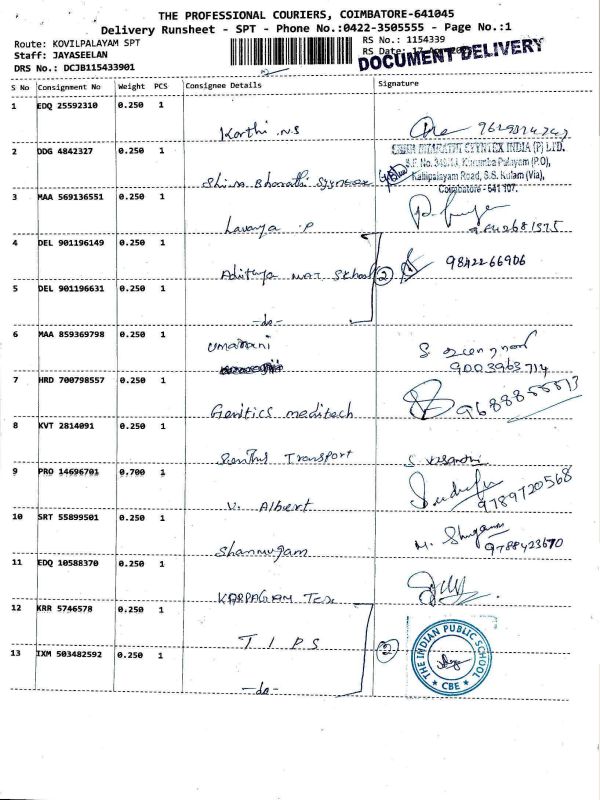 THE PROFESSIONAL COURIERS, COIMBATORE-641045
Delivery Runsheet - SPT - Phone No.:0422-3505555 - Page No.:1
Route: KOVILPALAYAM SPT
RS No.: 1154339
Staff: JAYASEELAN
RS Date:
DOCUMENT DELIVERY
DRS No.: DCJB115433901
S No Consignment No Weight PCS Consignee Details Signature
1 EDQ 25592310 0.250 1
Karthi N.S
2 DDG 4842327 0.250 1
INDIA (P) LTD.
Kurumba Palayam (P.O),
Kalipalayam Road, S.S. Kulam (Via),
Coimbatore - 641 107.
3 MAA 569136551 0.250 1
Lavanya .P
4 DEL 901196149 0.250 1
Adithya MAT School 2 9842266906
5 DEL 901196631 0.250 1
-do-
6 MAA 859369798 0.250 1
Umarani
9003963714
7 HRD 700798557 0.250 1
Genitics meditech
8 KVT 2814091 0.250 1
Senthil Transport S. Vasanthi
9 PRO 14696701 0.700 1
V. Albert 9789720568
10 SRT 55899501 0.250 1
Shanmugam M. 9788423670
11 EDQ 10588370 0.250 1
KARPAGAM Tex
12 KRR 5746578 0.250 1
T I P S
13 IXM 503482592 0.250 1
2
THE INDIAN PUBLIC SCHOOL
CBE
-do-